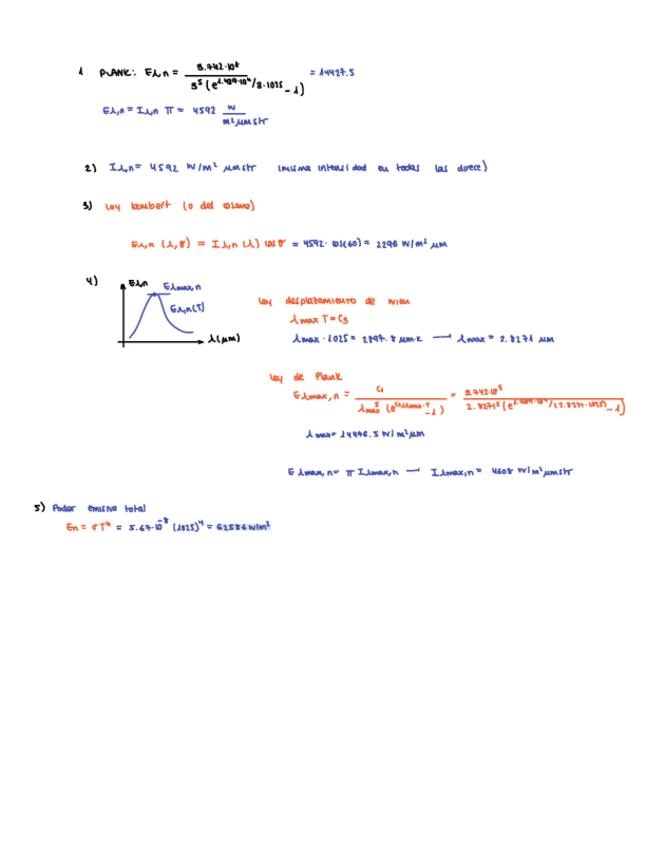 1 PLANK: Eλ,n = 3.742·10⁸ / 3⁵ (e^1.439·10⁴/3·1025 -1) = 14427.5
Eλ,n = Iλ,n π = 4592 W / m² μm str
2) Iλ,n = 4592 W/m² μm str (misma intensidad en todas las direcc)
3) Ley lambert (o del coseno)
Eλ,n (λ,θ) = Iλ,n (λ) cos θ = 4592 · cos(60) = 2296 W/m² μm
4) Eλ,n Eλmax,n
Eλ,n(T)
λ(μm)
Ley desplazamiento de wien
λmax T = C3
λmax · 1025 = 2897.8 μm·K → λmax = 2.8271 μm
Ley de Plank
Eλmax,n = C1 / λmax⁵ (e^C2/λmax·T -1) = 3.742·10⁸ / 2.8271⁵ (e^1.439·10⁴/(2.8271·1025) -1)
λmax = 14476.5 W/m² μm
Eλmax,n = π Iλmax,n → Iλmax,n = 4608 W/m² μm str
5) Poder emisivo total
En = σT⁴ = 5.67·10⁻⁸ (1025)⁴ = 62586 W/m²